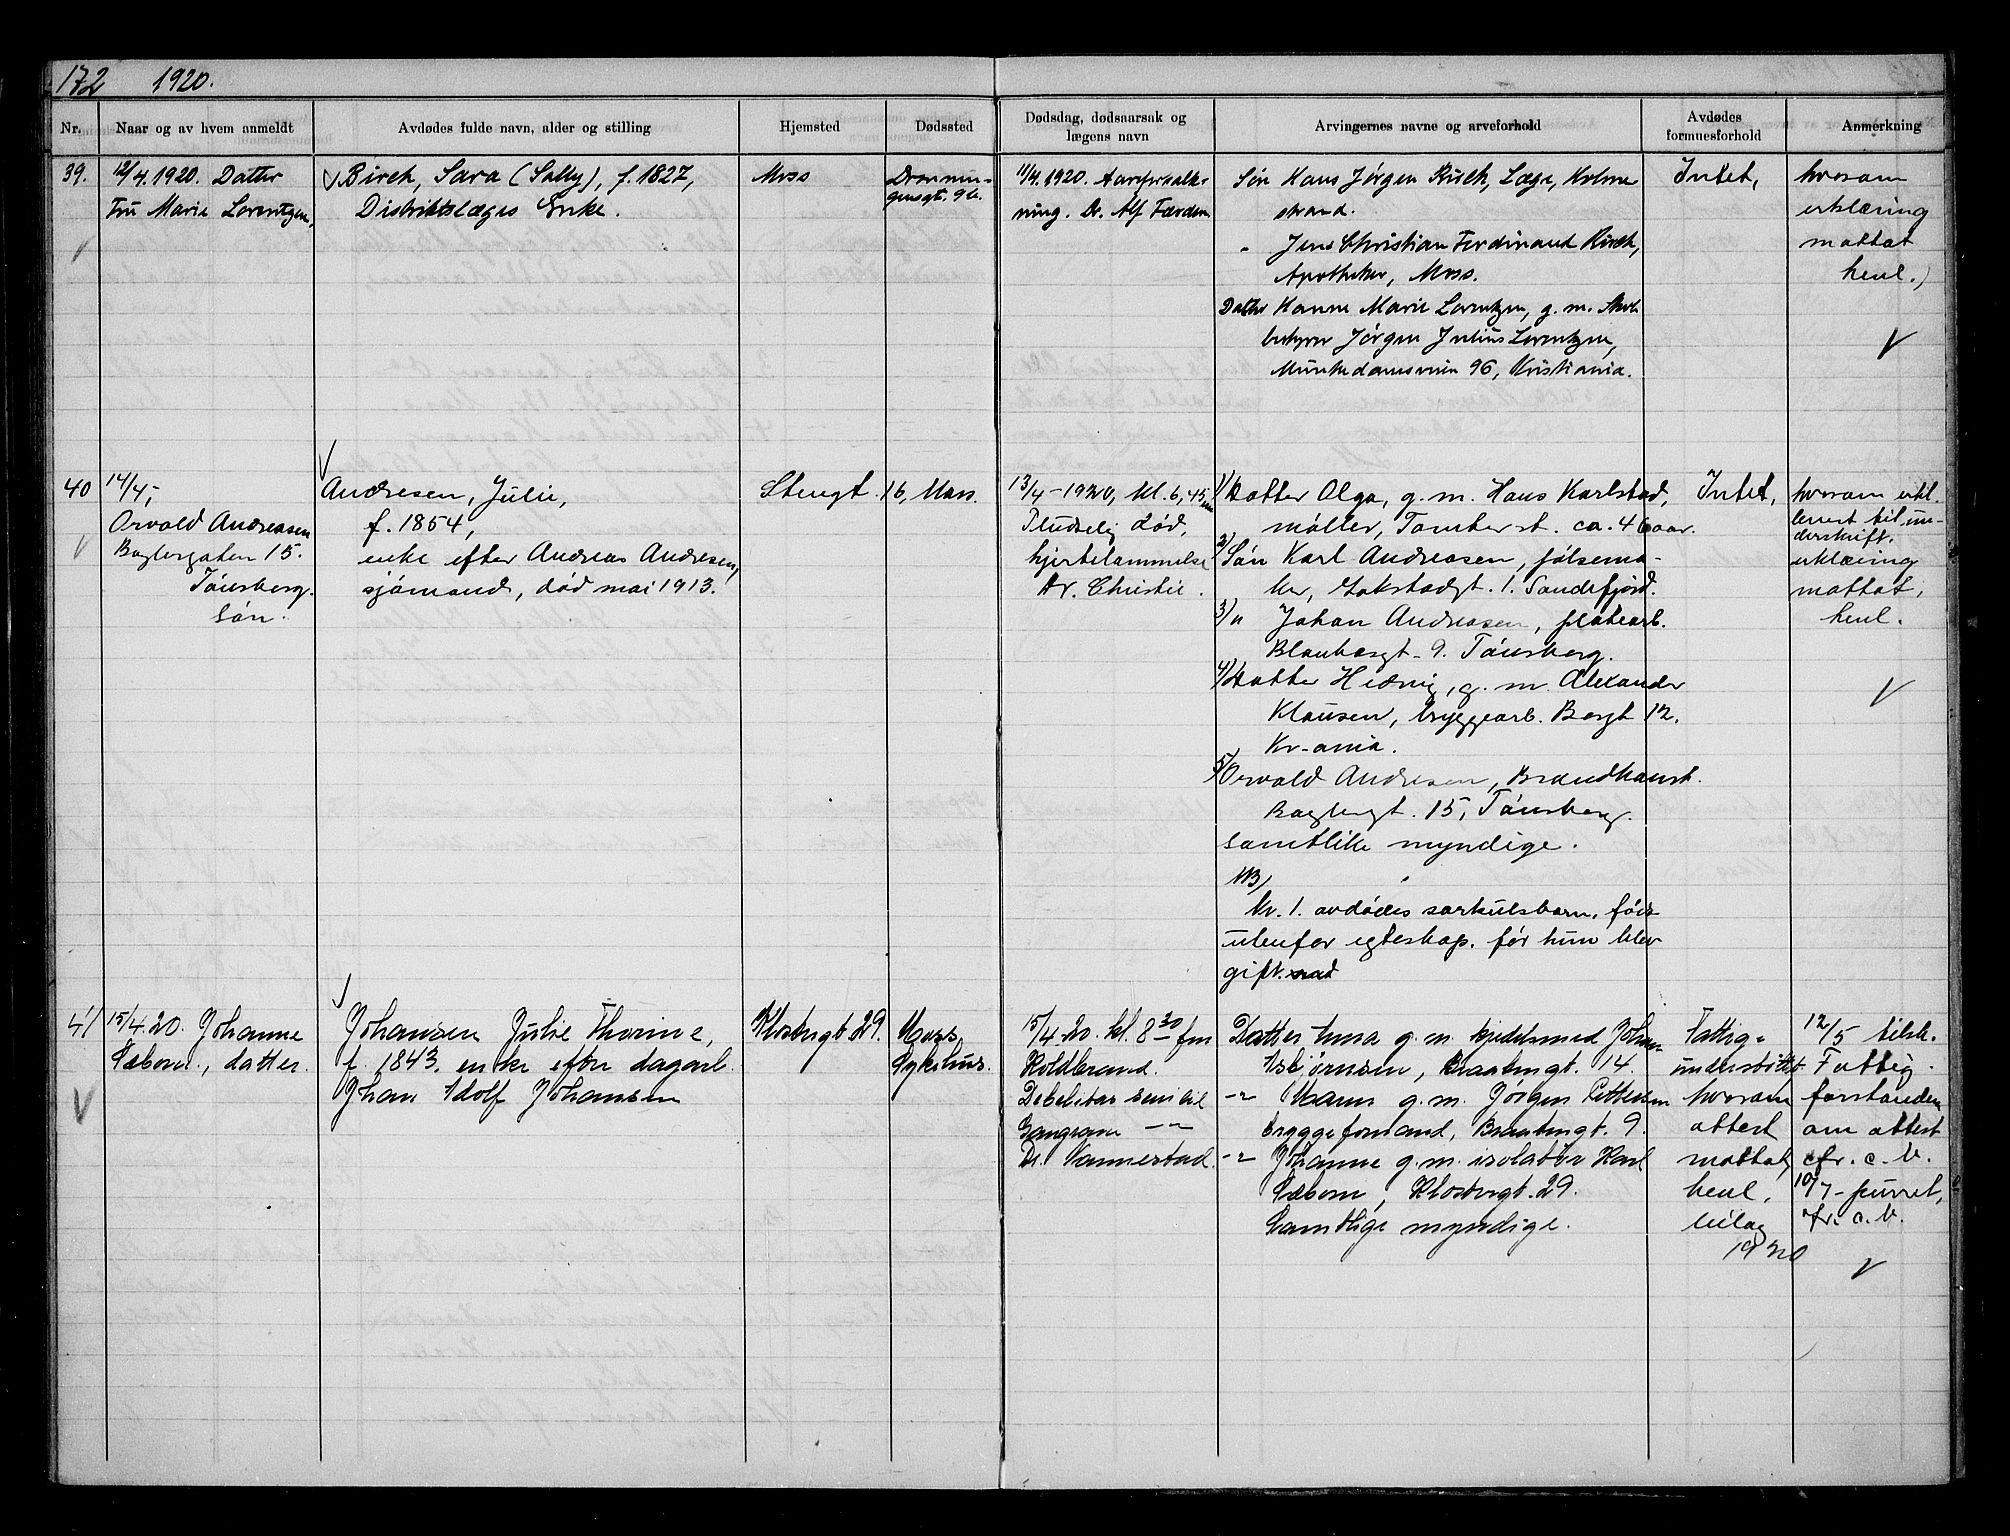 172 1920.
Nr.
Naar og av hvem anmeldt
Avdødes fulde navn, alder og stilling
Hjemsted
Dødssted
Dødsdag, dødsaarsak og
lægens navn
Arvingernes navne og arveforhold
Avdødes
formuesforhold
Anmerkning
39.
12/4.1920. Datter
Fru Marie Lorentzen,
Birch, Sara (Sally), f. 1827,
Distriktslæges Enke.
Moss
Dronnin-
gensgt. 9b.
11/4.1920.
ning. Dr. Alf Færden
Søn Hans Jørgen Birch, Læge, Holme
strand.
" Jens Christian Ferdinand Birch,
Apotheker, Moss.
Datter Hanne Marie Lorentzen, g. m. Skole
bestyrer Jørgen Julius Lorentzen,
Munkedamsveien 96, Kristiania.
Intet,
hvorom
erklæring
mottat
henl.)
40
14/4,
Osvald Andreasen
Baglergaten 15.
Tönsberg.
sön.
Andresen, Julie,
f. 1854,
enke efter Andreas Andresen,
sjömand, död mai 1913.
Stengt. 16, Moss.
13/4-1920, kl. 6,45
Pludselig död,
hjertelammelse
Dr. Christie.
1) Datter Olga, g. m. Hans Karlstad,
möller, Tomter st. ca. 46 aar.
2) Sön Karl Andreasen, pölsema-
ker, Gokstadgt. 1. Sandefjord.
3) " Johan Andreasen, platearb.
9. Tönsberg.
4) Datter Hedvig, g. m. Alexander
Klausen, bryggearb. Borgt 12.
Kr-ania.
5) Osvald Andresen, Brandkonst.
Baglergt. 15, Tönsberg.
samtlike myndige.
NB)
Nr. 1. avdödes særkulsbarn, född
utenfor egteskap. för hun blev
gift.
Intet,
hvorom erkl.
levert til un-
derskrift.
erklæring
mottat,
henl.
41
15/4.20. Johanne
Sæbom, datter.
Johansen Julie Thorine,
f. 1843. enke efter dagarb.
Johan Adolf Johansen
Klostergt. 29.
Moss
Sykehus.
15/4-20. kl. 8 30 fm
Koldbrand.
Gangræn
Dr. Vannestad.
Datter Anna g.m. kjedelsmed Johan
Asbjørnsen, 14.
-"- g.m. Jørgen Pettersen
bryggeformand, 9.
-"- Johanne g.m. isolatör Karl
Sæbom, Klostergt. 29.
Samtlige myndige.
Fattig-
understöttet
hvorom
attest
mottat,
henl.
bilag
1920
12/5 tilsk.
Fattig-
forstanderen
om attest
cfr. c. b.
10/7- purret,
cfr. c. b.